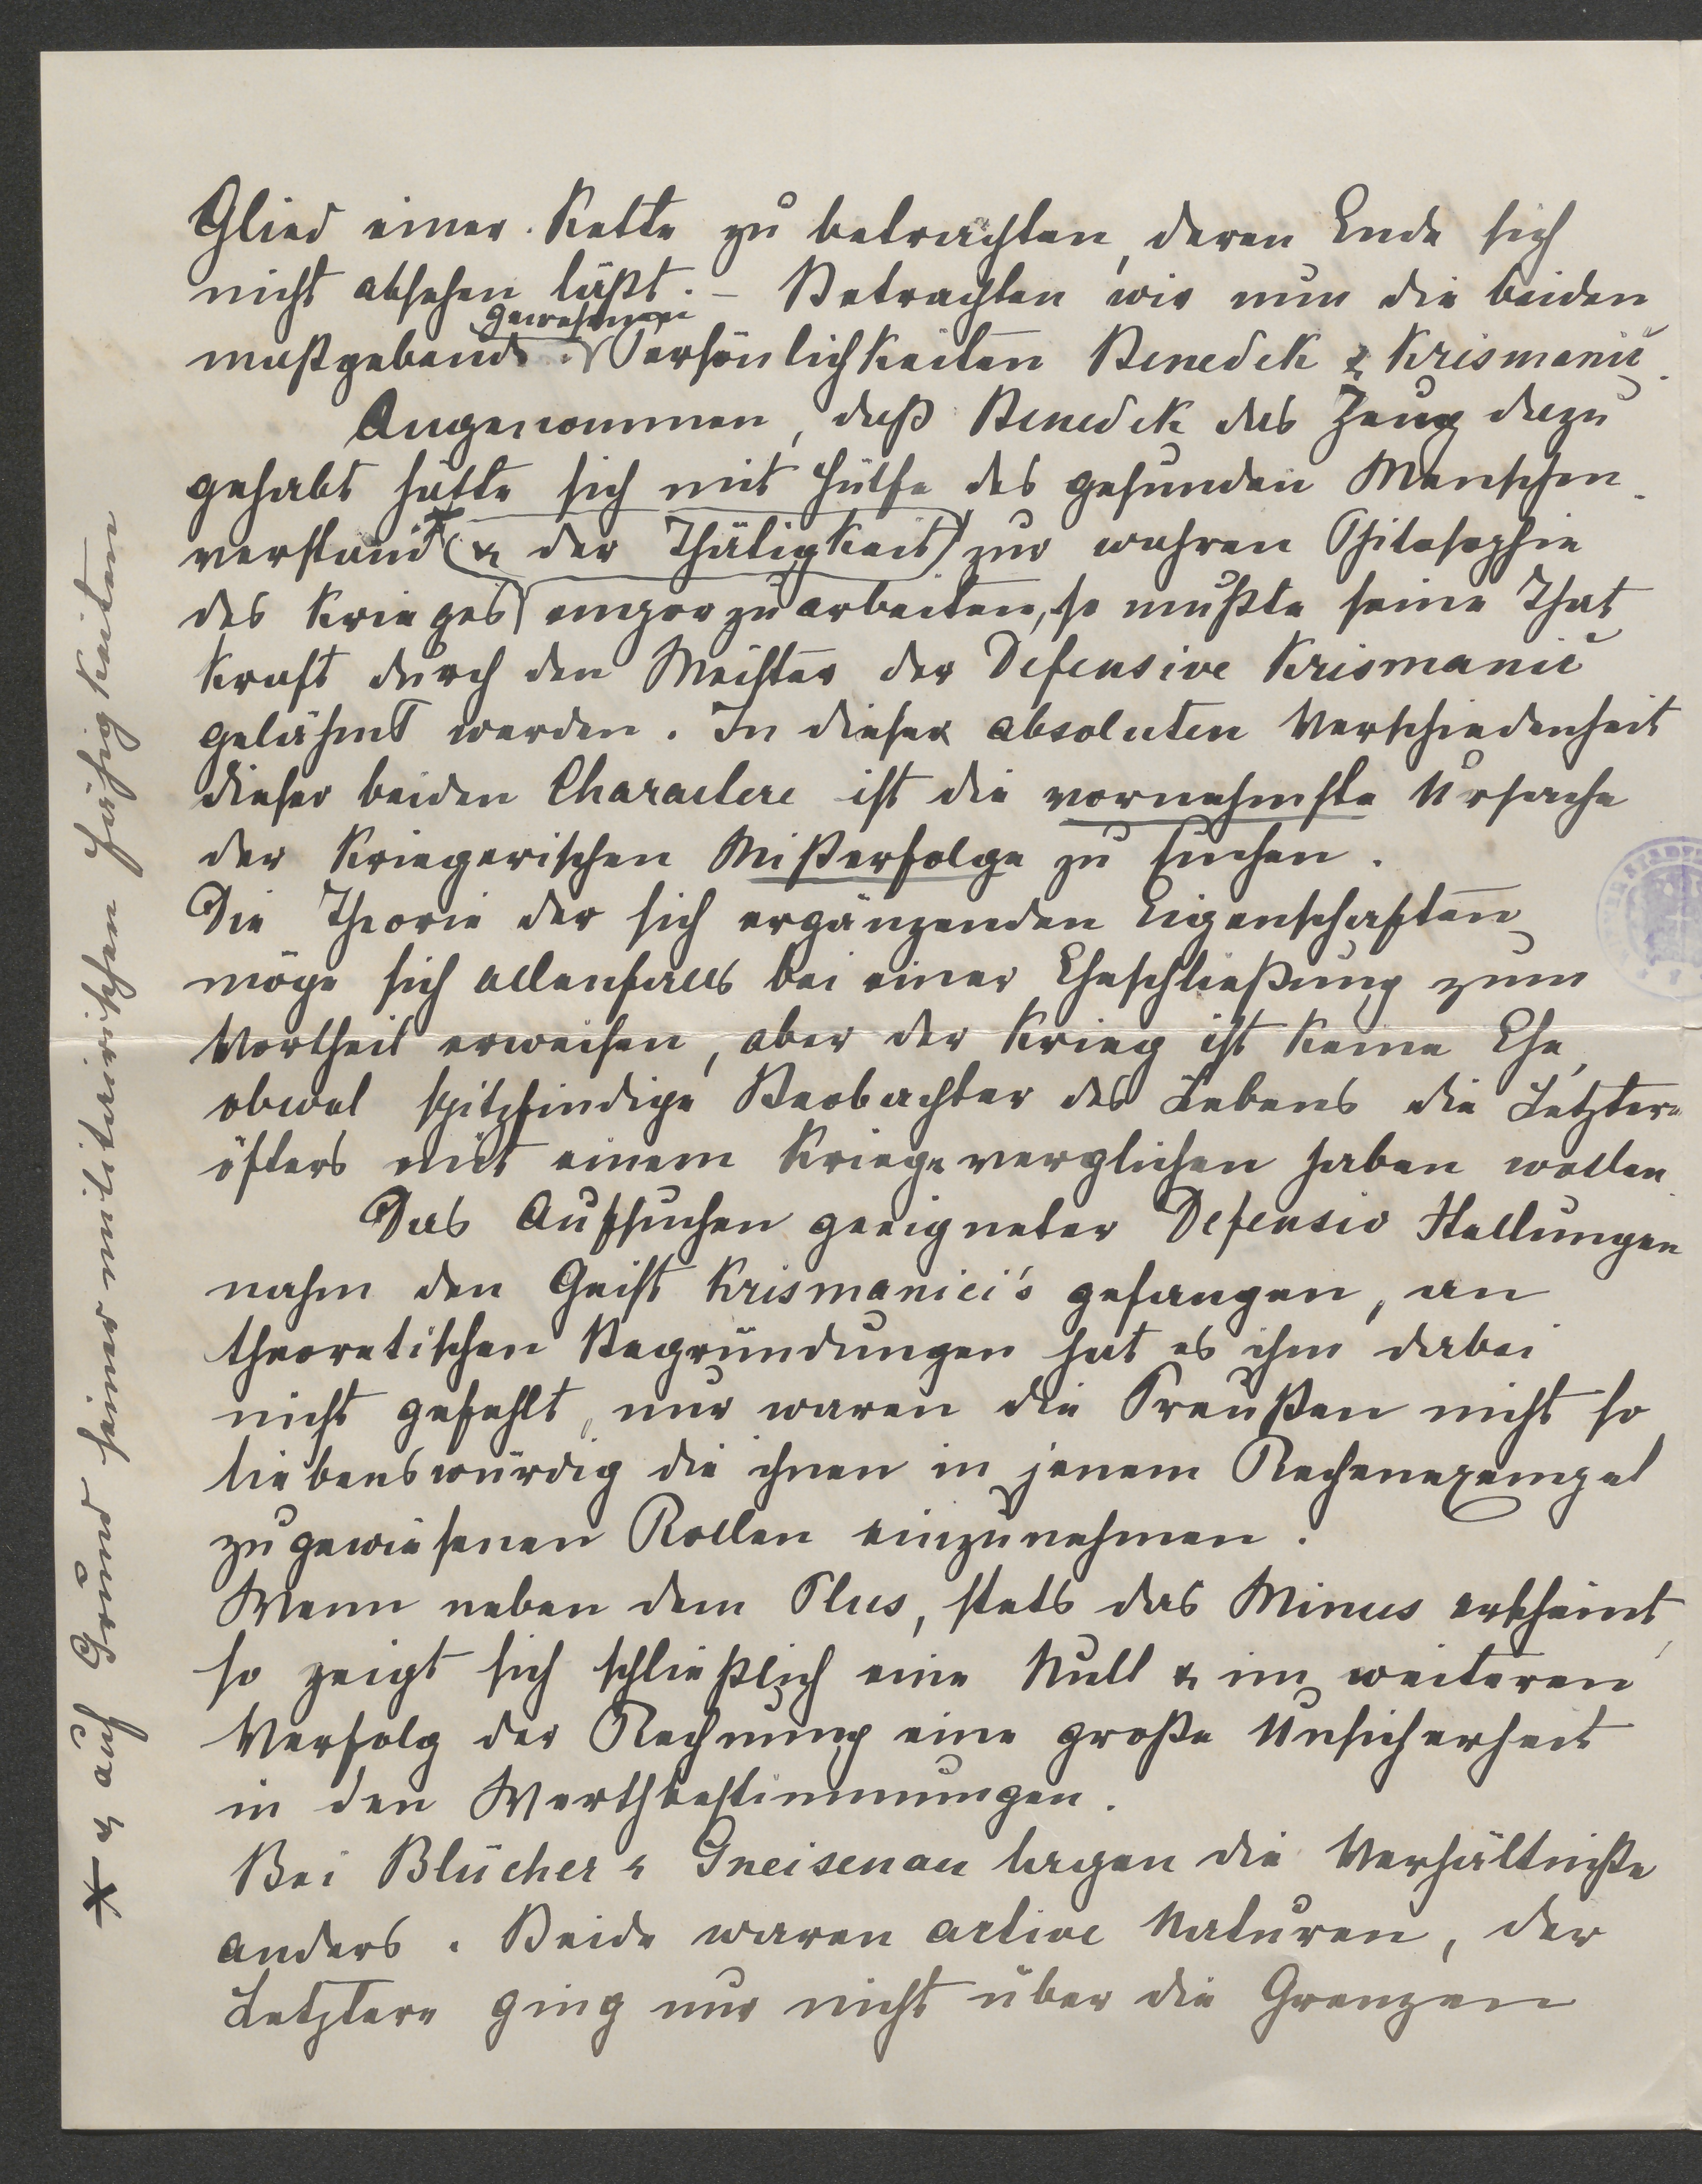 Glied einer Kette zu betrachten, deren Ende sich
nicht absehen läßt. – Betrachten wir nun die beiden
gewesenen
maßgebend Persönlichkeiten Benedek & Krismanič.
Angenommen, daß Benedek das Zeug dazu
gehabt hätte sich mit Hülfe des gesunden Menschen-
verstand * (& der Thätigkeit) zur wahren Philosophie
des Krieges emporzuarbeiten, so mußte seine That
kraft durch den Meister der Defensive Krismanič
gelähmt werden. In dieser absoluten Verschiedenheit
dieser beiden Charactere ist die vornehmste Ursache
der kriegerischen Mißerfolge zu suchen.
Die Theorie der sich ergänzenden Eigenschaften
möge sich allenfalls bei einer Eheschließung zum
Vortheil erweisen, aber der Krieg ist keine Ehe,
obwol spitzfindige Beobachter des Lebens die Letztere
öfters mit einem Kriege verglichen haben wollen.
Das Aufsuchen geeigneter Defensiv Stellungen
nahm den Geist Krismanici's gefangen, an
theoretischen Begründungen hat es ihm dabei
nicht gefehlt, nur waren die Preußen nicht so
liebenswürdig die ihnen in jenem Rechenexempel
zugewiesenen Rollen einzunehmen.
Wenn neben dem Plus, stets das Minus erscheint,
so zeigt sich schließlich eine Null & im weiteren
Verfolg der Rechnung eine große Unsicherheit
in den Werthbestimmungen.
Bei Blücher & Gneisenau lagen die Verhältniße
anders. Beide waren active Naturen, der
Letztere ging nur nicht über die Grenzen
* & auf Grund seiner militairischen Fähigkeiten